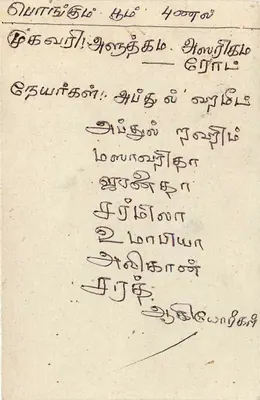 பொங்கும் பூம் புனல்
முகவரி: அளுத்கம அஸரிகம
ரோட்
நேயர்கள்: அப்துல் ஹமீட்
அப்துல் றஹீம்
மஸாஹிதா
ஜனீதா
சர்மிலா
உமாபியா
அலிகான்
சரத்
ஆகியோர்கள்